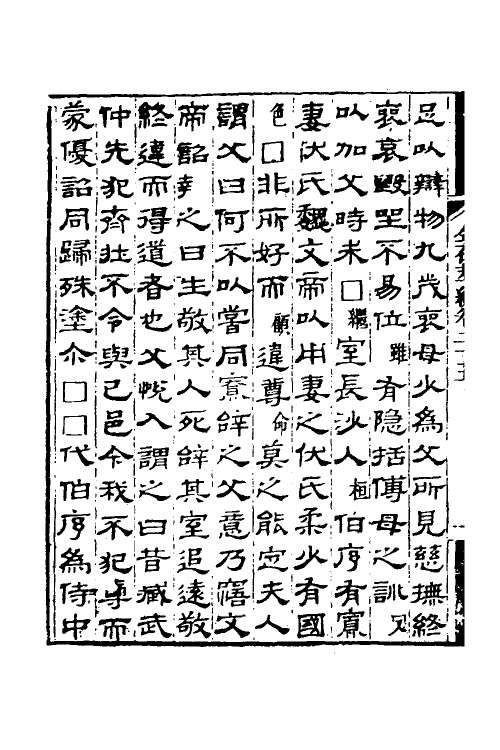 足以辯物九歲喪母少為父所見慈撫終
喪哀毀聖不易位雖有隱括傅母之訓又
以加父時未□繼室長沙人桓伯序有寡
妻伏氏魏文帝以甲妻之伏氏柔少有國
色□非所好而顧違尊命莫之能定夫人
謂父曰何不以當同寮辭之父意乃寤文
帝詔幸之曰生敬其人死辭其室追遠敬
終違而得道者也父悅入謂之曰昔臧武
仲先犯齊壯不令與己邑今我不犯卓而
蒙優詔同歸殊塗尒□□代伯序為侍中